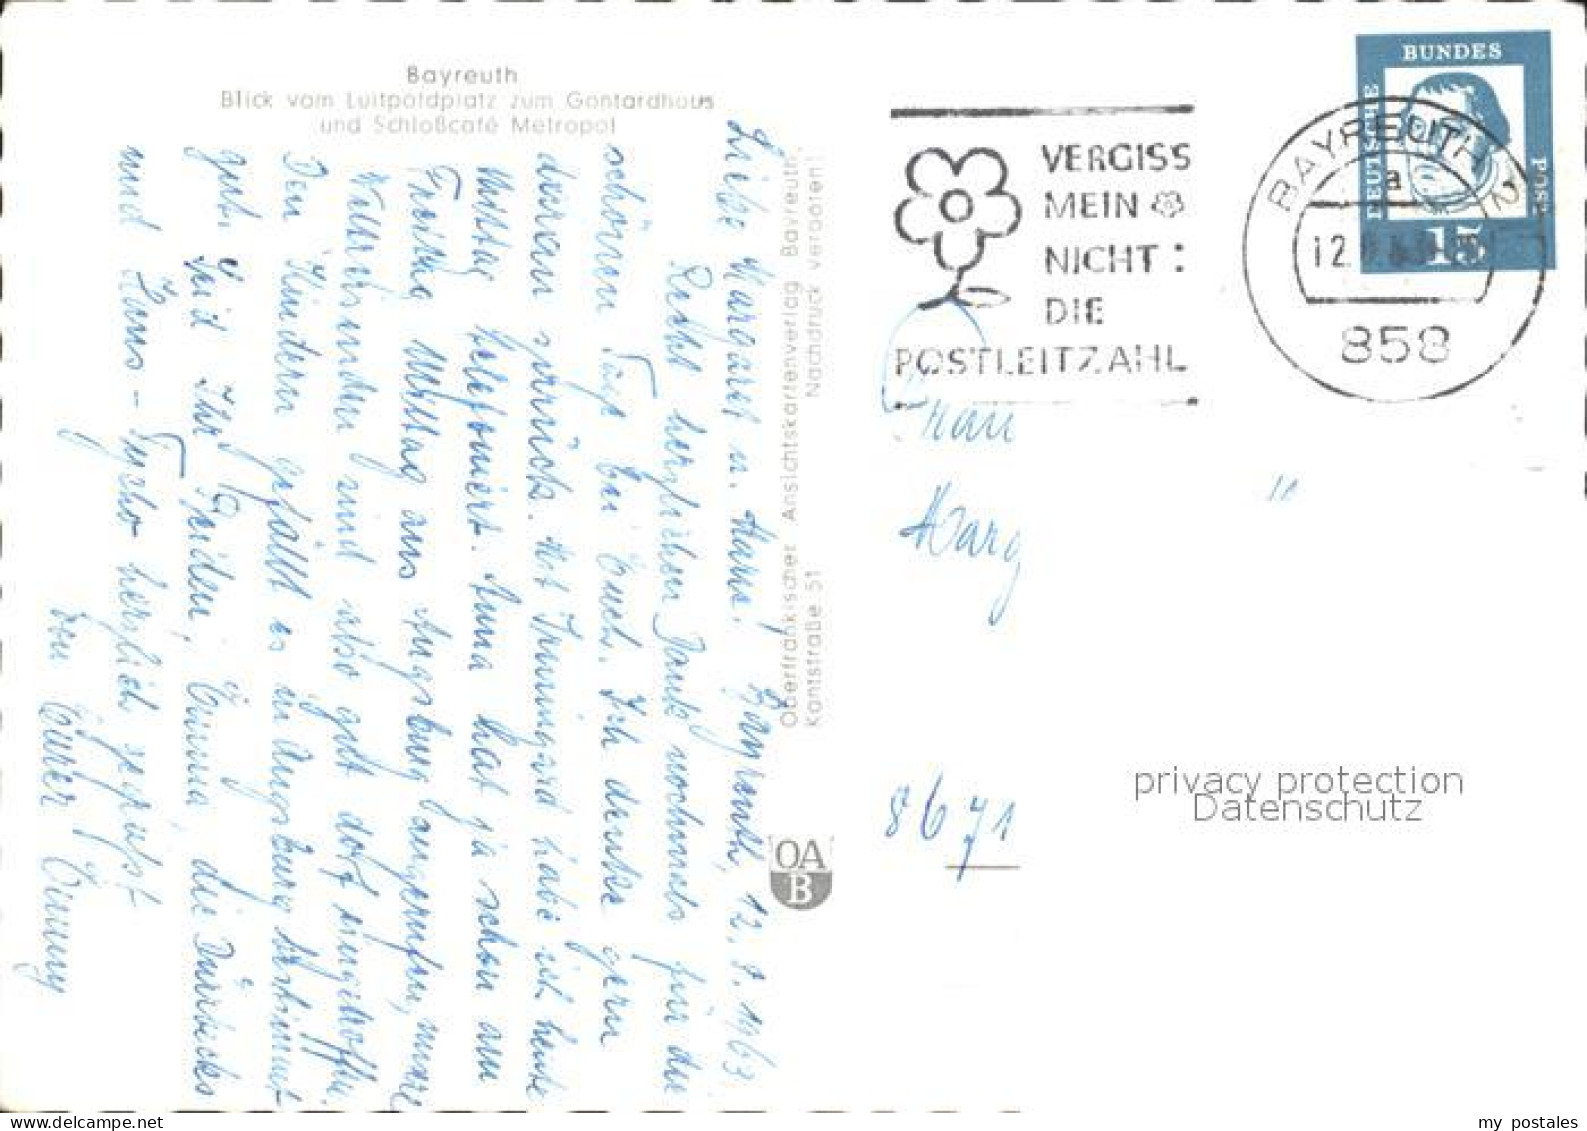 Bayreuth
Blick vom Luitpoldplatz zum Gontardhaus
und Schloßcafé Metropol
Liebe Margaret u. Hans! Bayreuth, 12. 8. 1963
Recht herzlichen Dank nochmals für die
schönen Tage bei Euch. Ich denke gern
daran zurück. Mit Irmingard habe ich heute
Mittag telefoniert. Anna hat ja schon am
Freitag Mittag aus Augsburg angerufen, unsere
sind also gut dort eingetroffen.
Den Kindern gefällt es in Augsburg bestimmt
gut. Seid Ihr Beiden, Emma, die Dürbecks
und Hans - Tycho herzlich gegrüßt
von Eurer Emmy
Oberfränkischer Ansichtskartenverlag Bayreuth,
Kantstraße 51 Nachdruck verboten!
OA
B
VERGISS
MEIN
NICHT:
DIE
POSTLEITZAHL
BAYREUTH 2
a
12.
858
DEUTSCHE
BUNDES
POST
15
Frau
Marg
8671
privacy protection
Datenschutz
my postales